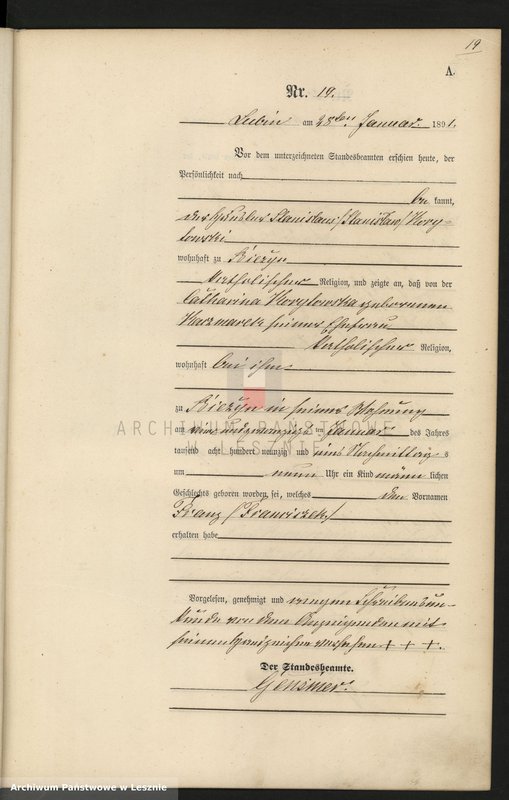 19
A.
Nr. 19.
Lubin am 28ten Januar 1891.
Vor dem unterzeichneten Standesbeamten erschien heute, der
Persönlichkeit nach
be kannt,
der Häusler Stanislaus /Stanisław/ Kory-
towski
wohnhaft zu Bieżyn
katholischer Religion, und zeigte an, daß von der
Catharina Korytowska geborenen
Kaczmarek seiner Ehefrau
katholischer Religion,
wohnhaft bei ihm
zu Bieżyn in seiner Wohnung
am ten Januar des Jahres
tausend acht hundert neunzig und eins Nachmittag s
um neun Uhr ein Kind männ lichen
Geschlechts geboren worden sei, welches den Vornamen
Franz /Franciszek/
erhalten habe
Vorgelesen, genehmigt und wegen Schreibensun-
kunde von dem Anzeigenden mit
seinem Handzeichen versehen + + +.
Der Standesbeamte.
Gensmer.
ARCHIWUM PAŃSTWOWE
W LESZNIE
Archiwum Państwowe w Lesznie